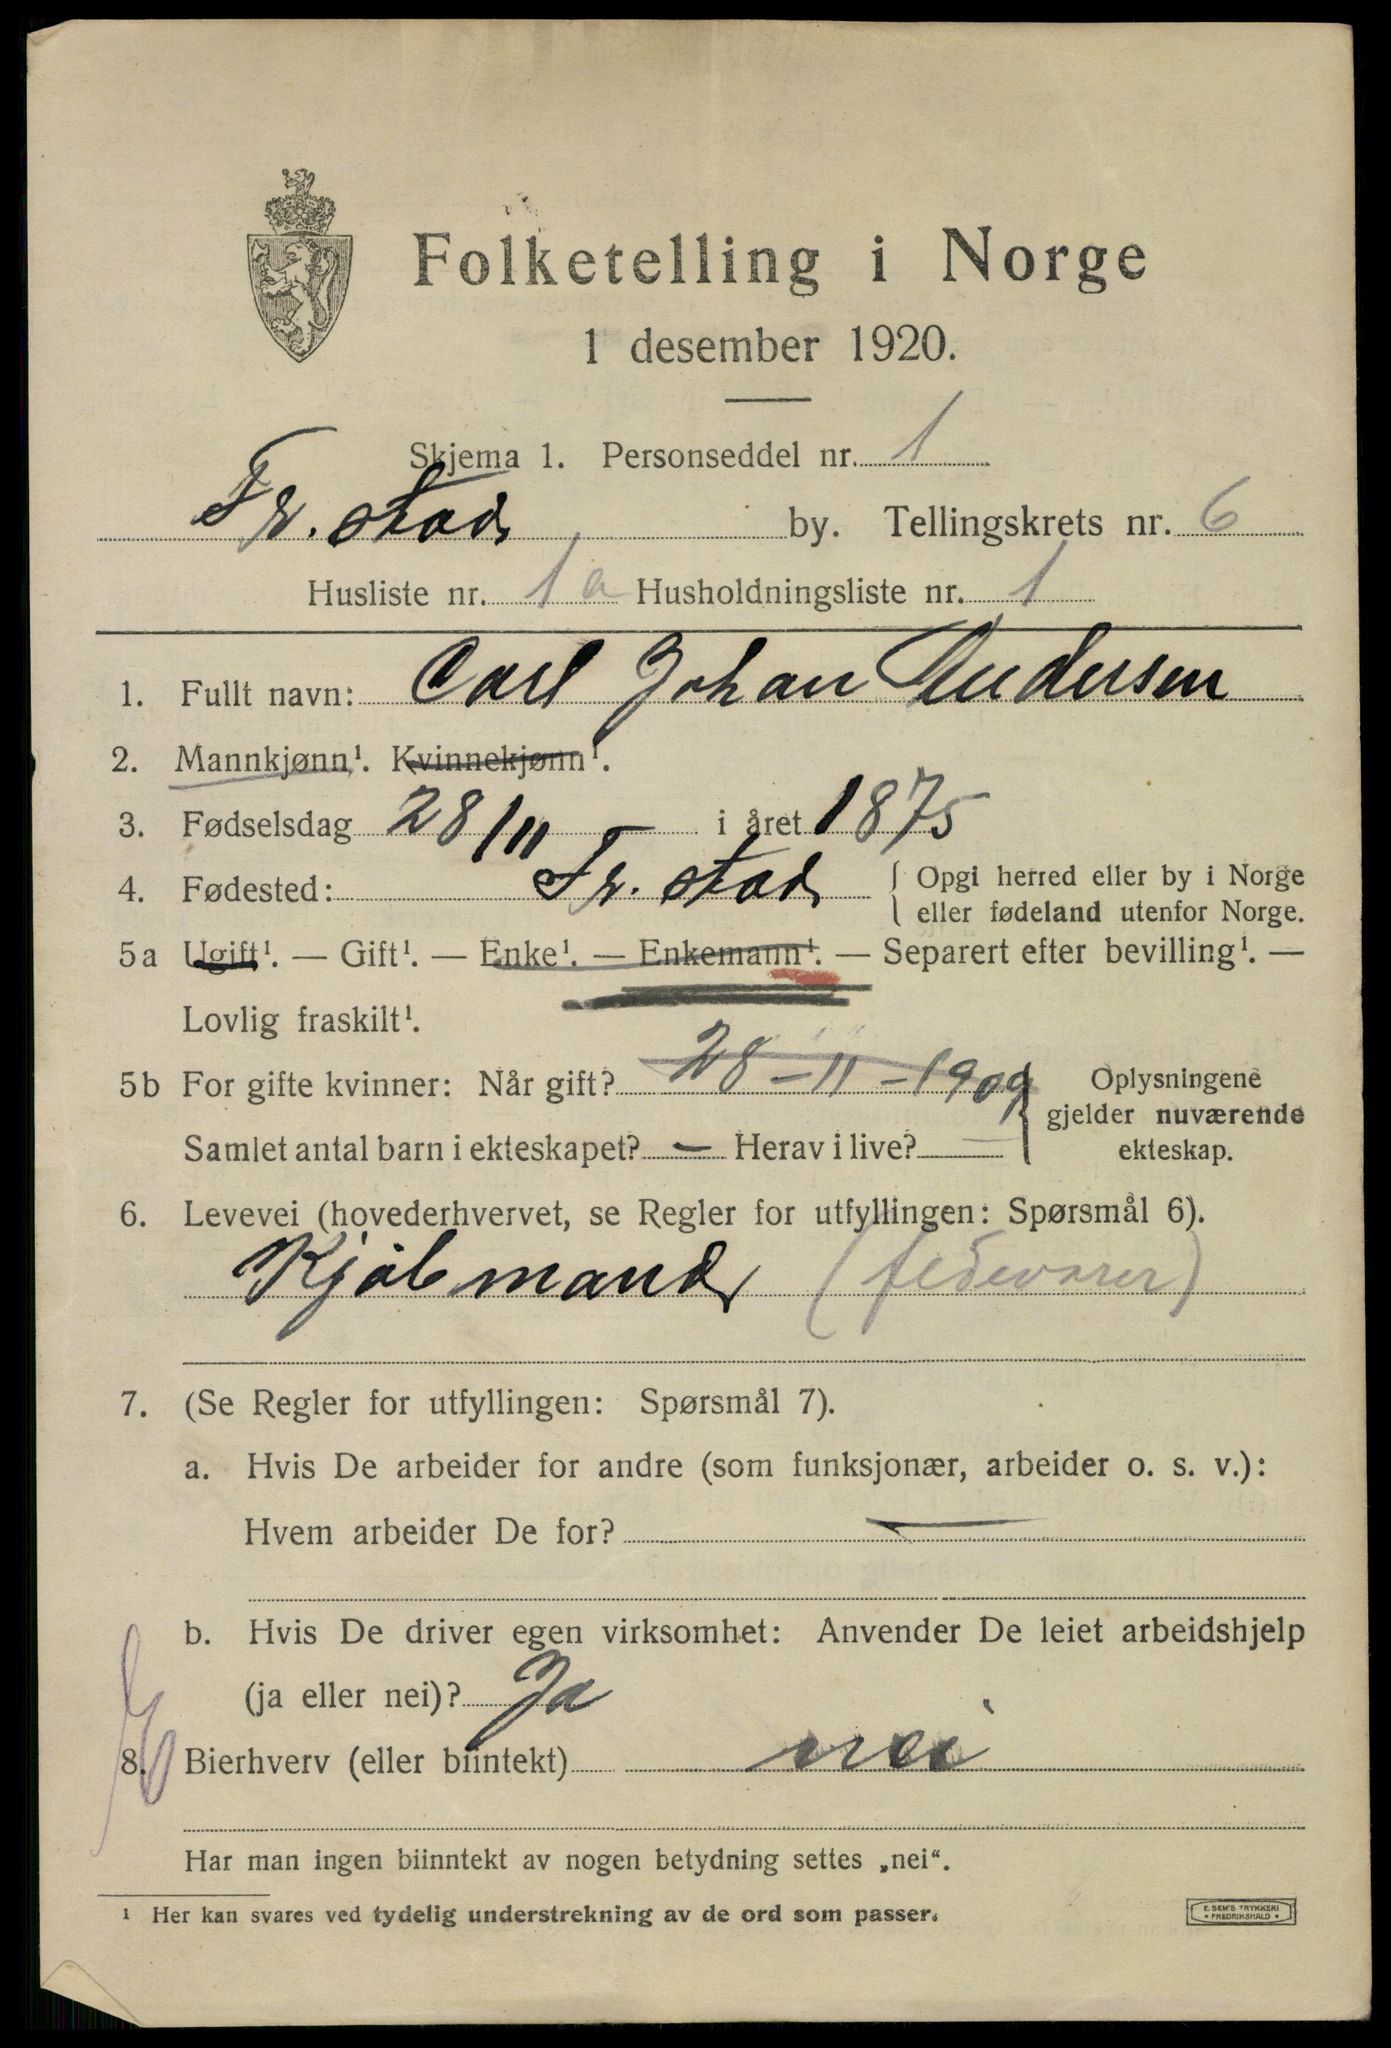 Folketelling i Norge
1 desember 1920.
Skjema 1. Personseddel nr. 1
Fr.stad by. Tellingskrets nr. 6
Husliste nr. 1a Husholdningsliste nr. 1
1. Fullt navn: Carl Johan Andersen
2. Mannkjønn¹. Kvinnekjønn¹.
3. Fødselsdag 28/11 i året 1875
4. Fødested: Fr.stad { Opgi herred eller by i Norge
eller fødeland utenfor Norge.
5a Ugift¹. — Gift¹. — Enke¹. — Enkemann¹. — Separert efter bevilling¹. —
Lovlig fraskilt¹.
5b For gifte kvinner: Når gift? 28-11-1909
Samlet antal barn i ekteskapet? — Herav i live? —
Oplysningene
gjelder nuværende
ekteskap.
6. Levevei (hovederhvervet, se Regler for utfyllingen: Spørsmål 6).
Kjøbmand (fedevarer)
7. (Se Regler for utfyllingen: Spørsmål 7).
a. Hvis De arbeider for andre (som funksjonær, arbeider o. s. v.):
Hvem arbeider De for? —
b. Hvis De driver egen virksomhet: Anvender De leiet arbeidshjelp
(ja eller nei)? Ja
8. Bierhverv (eller biintekt) nei
Har man ingen biinntekt av nogen betydning settes „nei“.
¹ Her kan svares ved tydelig understrekning av de ord som passer.
E. SEM'S TRYKKERI
• FREDRIKSHALD •